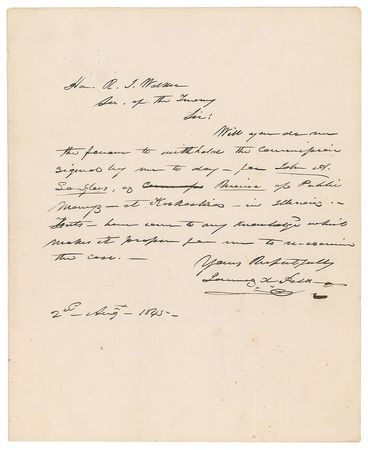 Hon. R. J. Walker
Sec. of the Treasy
Sir:
Will you do me
the favour to withhold the Commission
signed by me to day - for John A.
Langlois, as Receiver of Public
Moneys - at Kaskaskia - in Illinois. -
Facts - have come to my knowledge which
makes it proper for me to re-examine
the case. -
Yours Respectfully
James K. Polk
2d Augt 1845 -